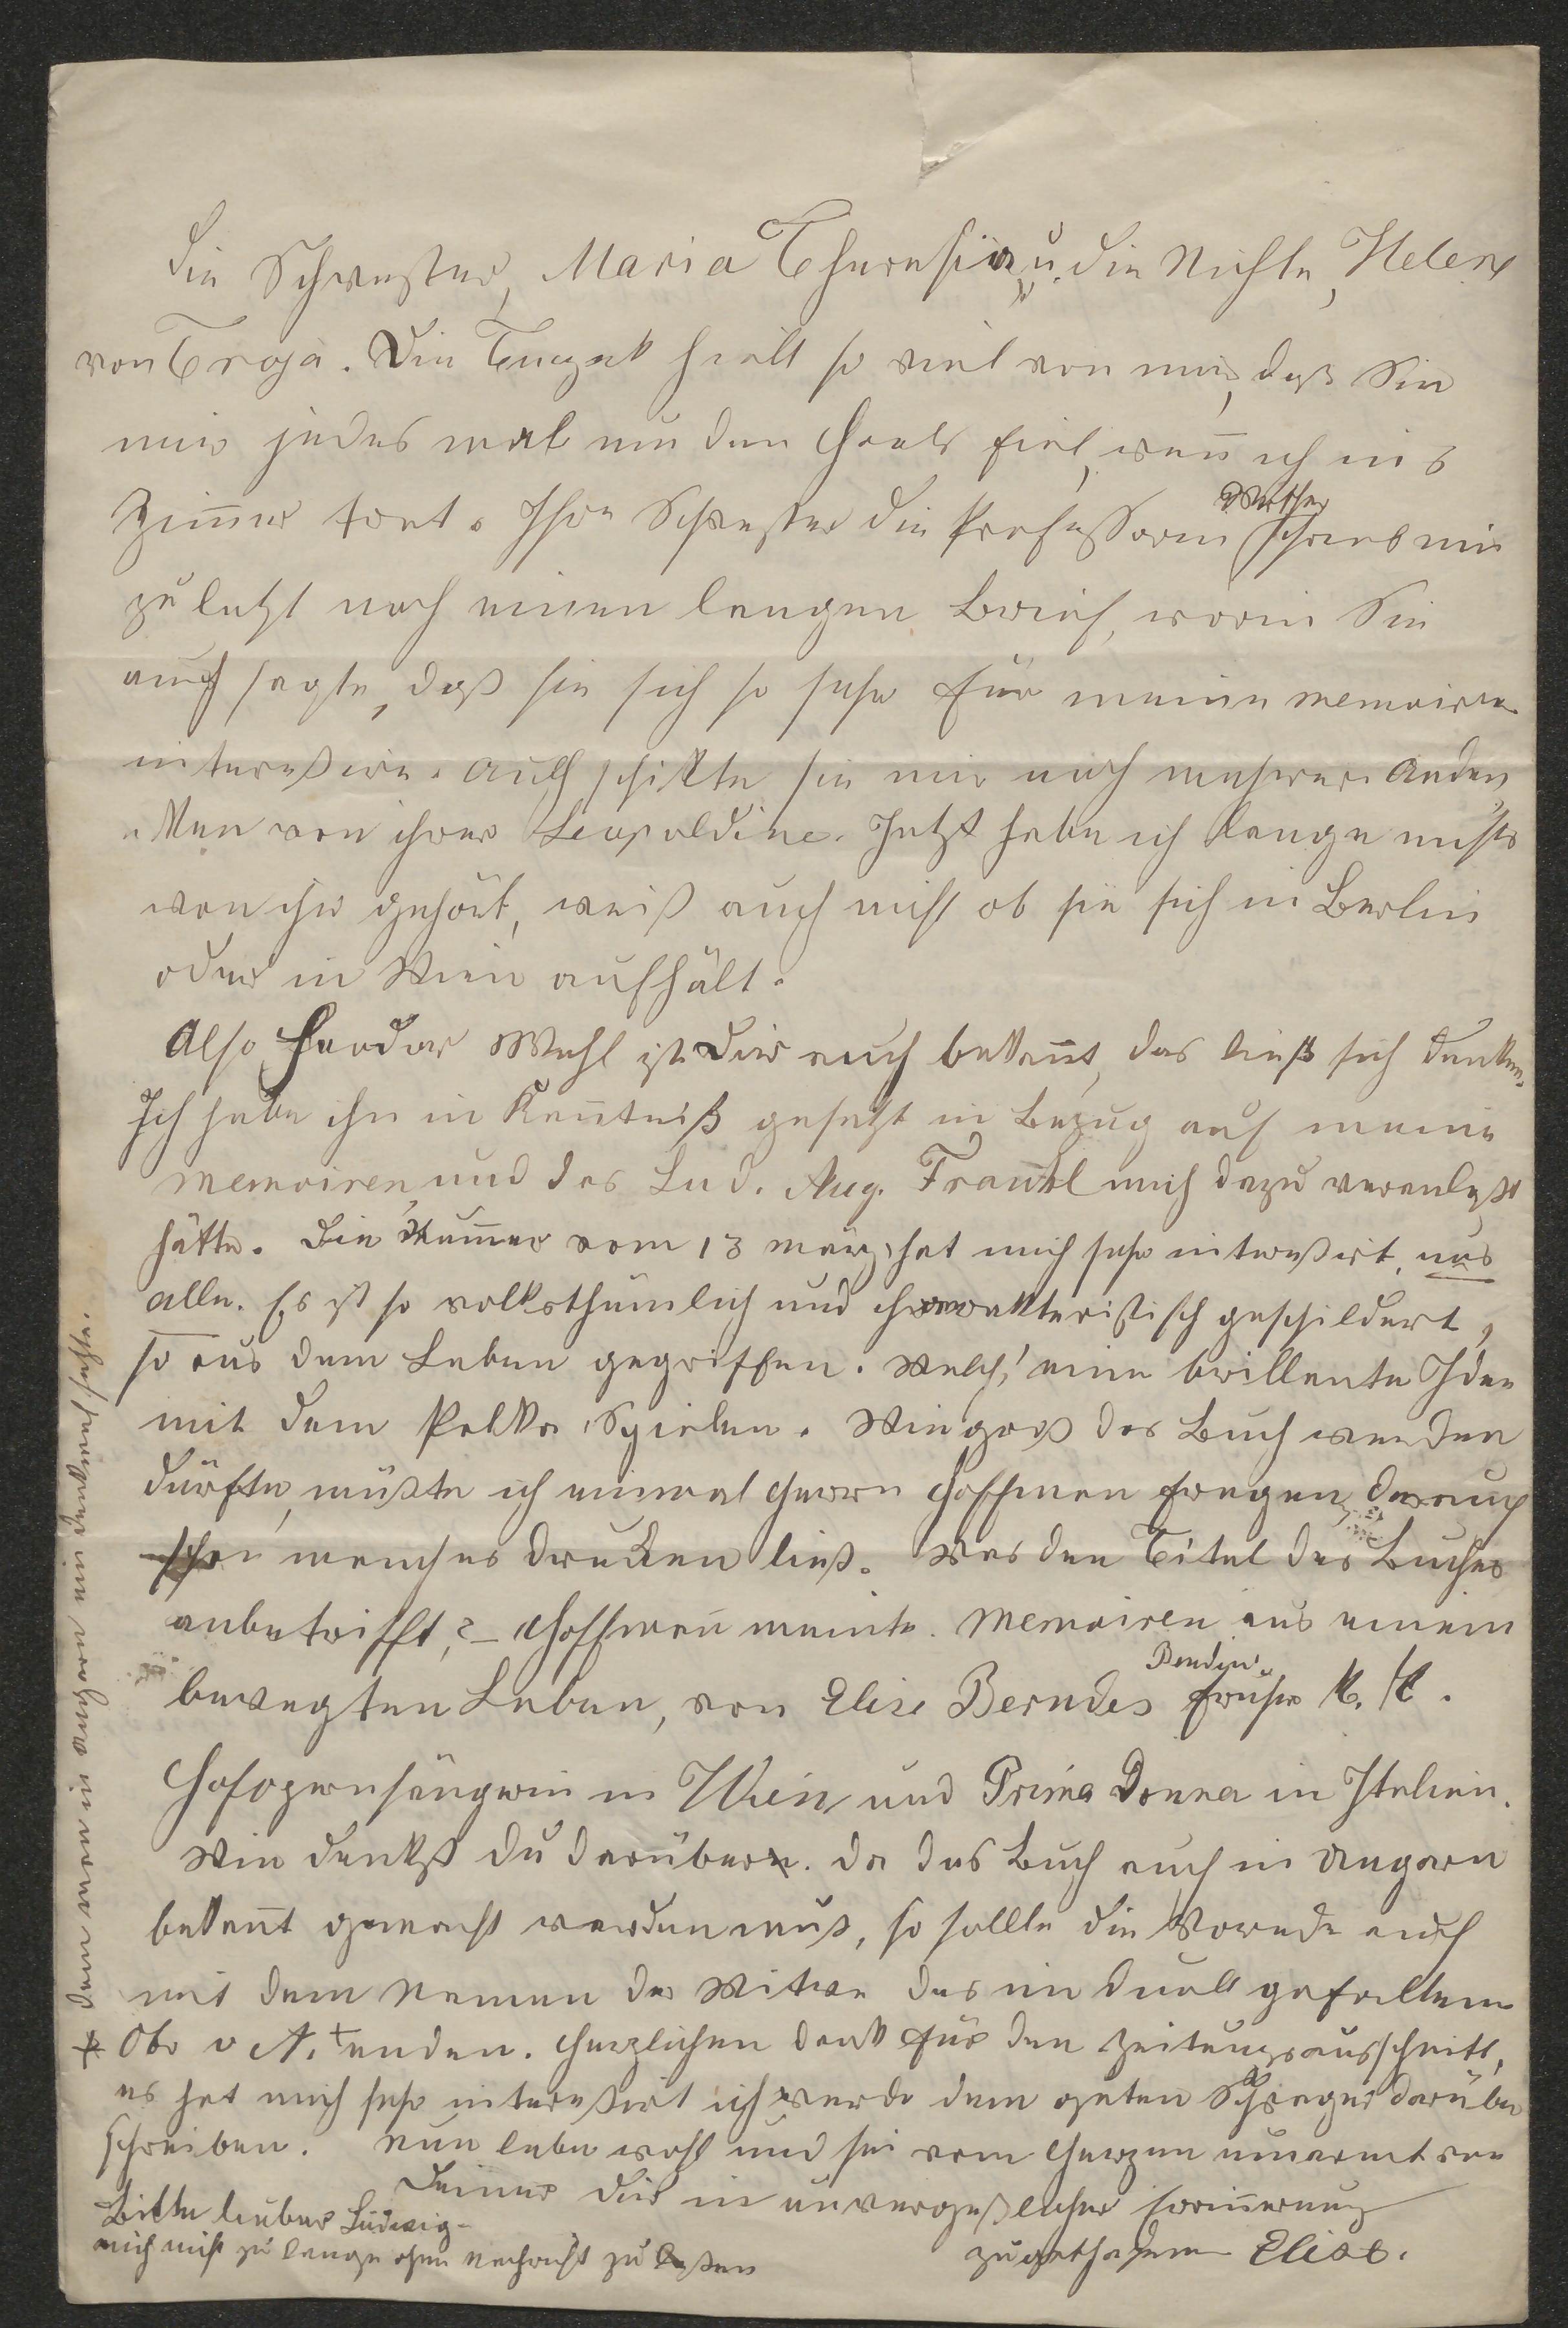 die Schwester, Maria Theresia, u. die Nichte, Helene
von Troja. Die Tuczek hielt so viel von mir, daß Sie
mir jedes mal um den Hals fiel, wen̄ ich ins
Zim̄er trat. Ihre Schwester die Professorin Werther schrieb mir
zuletzt noch einen langen Brief, worin Sie
auch sagte, daß sie sich so sehr für meine Memoiren
intereßire. Auch schikte sie mir noch mehrere Anden
"ken von ihrer Leopoldine. Jetzt habe ich lange nichts
von ihr gehört, weiß auch nicht ob sie sich in Berlin
oder in Wien aufhält.
Also, Feodor Wehl ist Dir auch bekan̄t, das ließ sich denken.
Ich habe ihn in Ken̄tniß gesetzt in Bezug auf meine
Memoiren, und das Lud. Aug. Frankl mich dazu veranlaßt
hätte. Die Num̄er vom 13 März hat mich sehr intereßirt, uns
alle. Es ist so volksthümlich und charakteristisch geschildert,
so aus dem Leben gegriffen. Welch' eine brillante Idee
mit dem Polka Spielen. Wie groß das Buch werden
dürfte, müßte ich einmal Herrn Hoffman fragen, der auch
schon manches drucken ließ. Was den Titel des Buches
anbetrifft, ?– Hoffman̄ meinte. Memoiren aus einem
bewegten Leben, von Elise Berndes Bendini früher K. K.
Hofopernsängerin in Wien und Prima Donna in Italien.
Wie denkst du darüber. Da das Buch auch in Ungarn
bekan̄t gemacht werden muß, so sollte die Vorrede auch
mit dem Namen der Witwe des im Duell gefallenen
Obr v A. + enden. Herzlichen Dank für den Zeitungsausschnitt,
es hat mich sehr intereßirt ich werde dem guten Schwager darüber
schreiben. Nun lebe wohl und sei vom Herzen umarmt von
Deiner Dir in unvergeßlicher Erin̄erung
zugethanen Elise.
Bitte lieber Ludwig
mich nicht zu lange ohne Nachricht zu laßen
+ dem man in Ungarn ein Denkmal setzte.